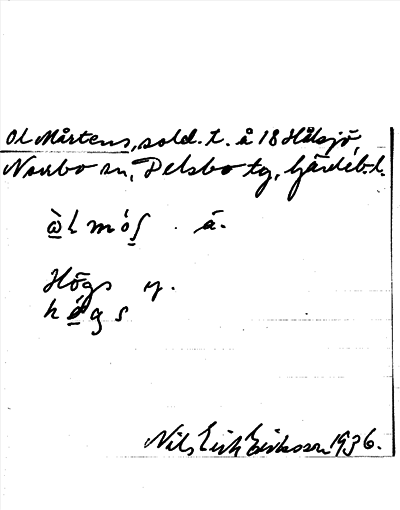 Ol Mårtens, sold. t. å 18 Hålsjö,
Norrbo sn, Delsbo tg, Gävleb. l.
å.
Högs sn.
Nils Erik Eriksson 1936.